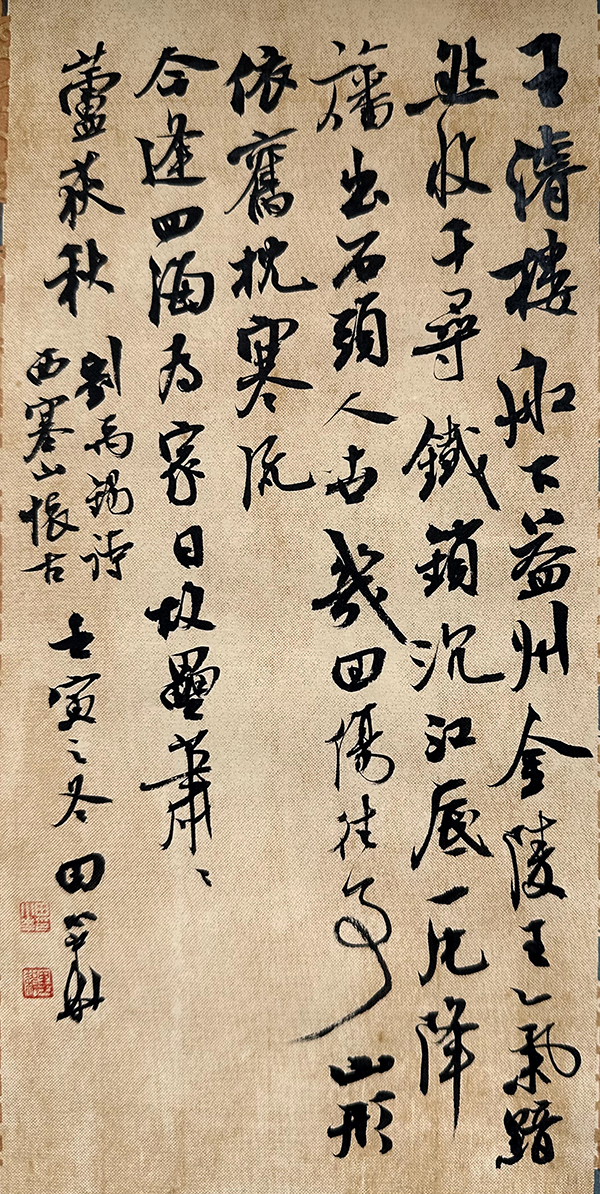 王清樓船下益州金陵王氣黯
然收千尋鐵鎖沉江底一片降
旛出石頭人世幾回傷往事山形
依舊枕寒流
今逢四海为家日故壘蕭〻
蘆荻秋
劉禹錫詩
西塞山懷古
壬寅之冬 田